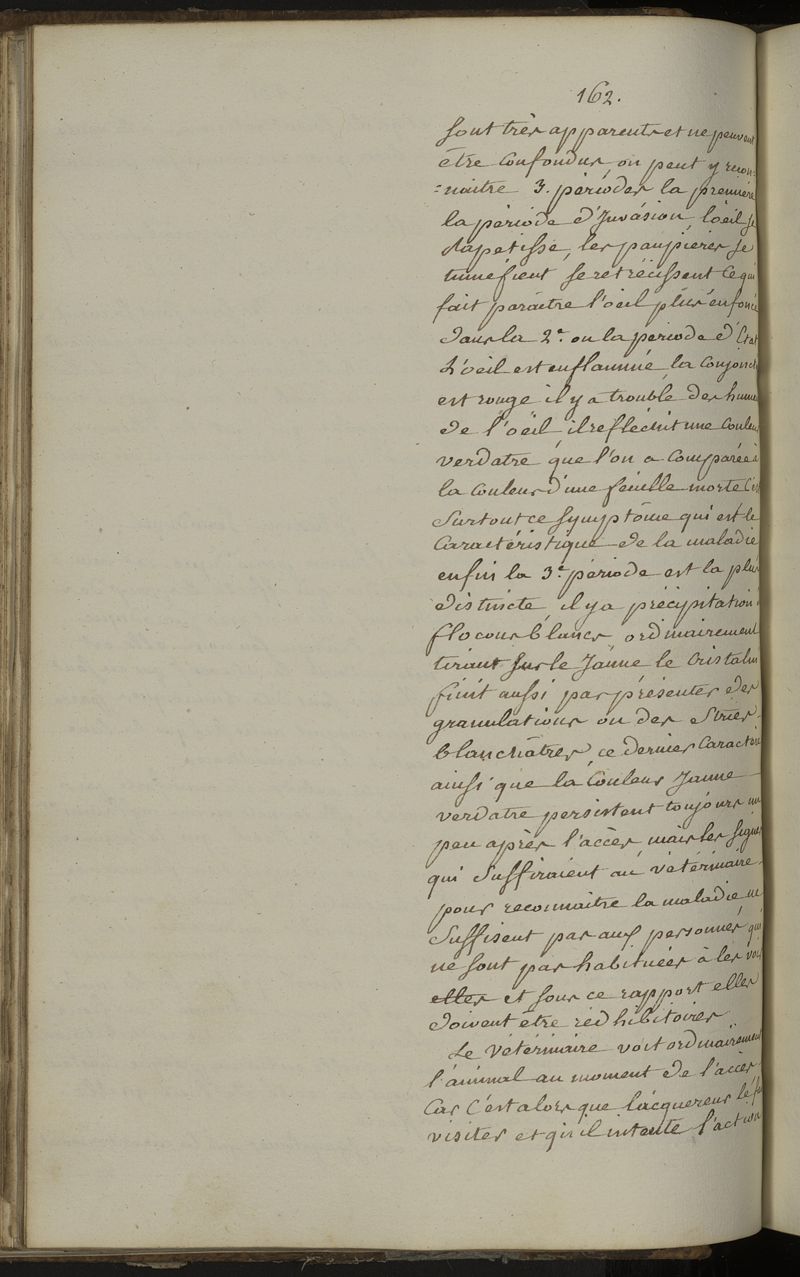 162.
sont très apparents et ne peuvent
être confondus, on peut y recon=
=naitre 3. périodes la première
la période d'Invasion, l'œil se
rapetisse, les paupières se
tuméfient se retrécissent ce qui
fait paraître l'oeil plus enfoncé
dans la 2.e ou la période d'Etat
L'oeil est enflammé, la conjonct
est rouge il y a trouble des hume
de l'oeil il refléchit une couleur
verdatre que l'on a comparée à
la couleur d'une feuille morte C'est
surtout ce symptôme qui est le
caractéristique de la maladie
enfin la 3.e période est la plus
distincte, il y a précipitation
flocons blancs, ordinairement
tirant sur le Jaune le cristalin
finit aussi par présenter des
granulations ou des stries
blanchâtres, ce dernier caractère
ainsi que la couleur Jaune
verdatre persistent toujours un
peu après l'accès, mais les signes
qui suffiraient au vétérinaire
pour reconnaître la maladie ne
suffisent pas aux personnes qui
ne sont pas habituées à les voir
elles et sous ce rapport elles
doivent être rédhibitoires
Le vétérinaire voit ordinairement
l'animal au moment de l'accès
Car C'est alors que l'acquereur le fai
visiter et qu'il intente l'action